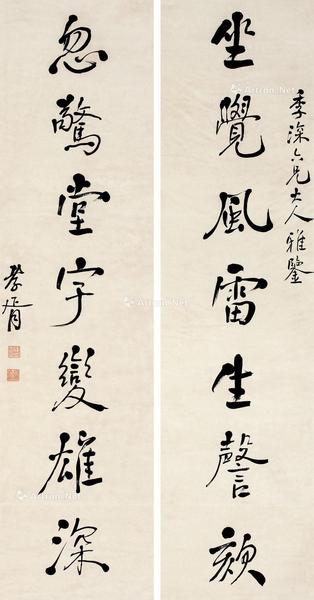 坐覺風雷生謦欬
季深六兄大人雅鑒
忽驚堂宇變雄深
孝胥
Artron.Net